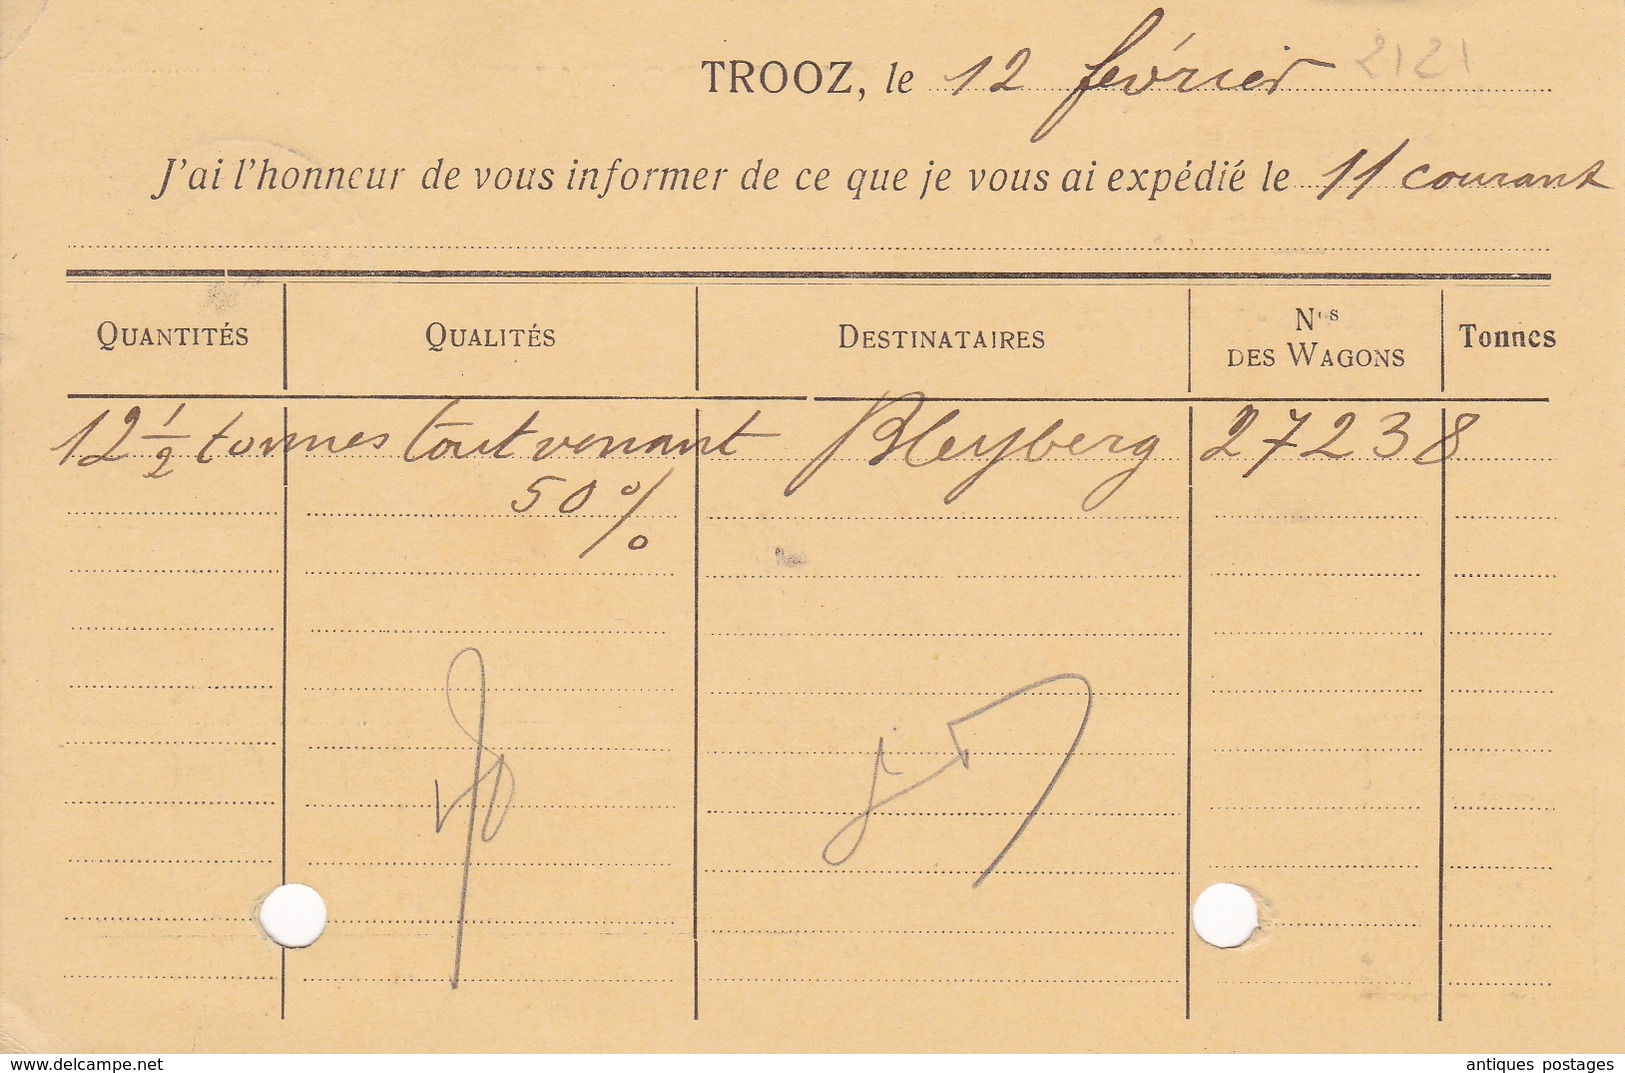 TROOZ, le 12 février
J'ai l'honneur de vous informer de ce que je vous ai expédié le 11 courant
QUANTITÉS QUALITÉS DESTINATAIRES Nos DES WAGONS Tonnes
12 1/2 tonnes tout venant Bleyberg 27238
50 %
delcampe.net antiques_postages